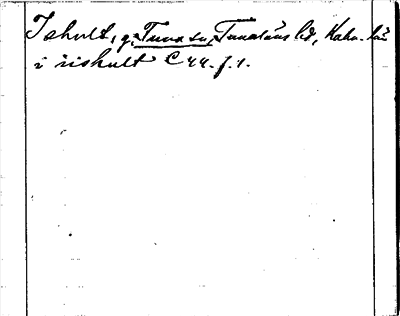 Ishult, g, Tuna sn, Tunaläns hd, Kalm. län
i iishult C 44. f. 1.